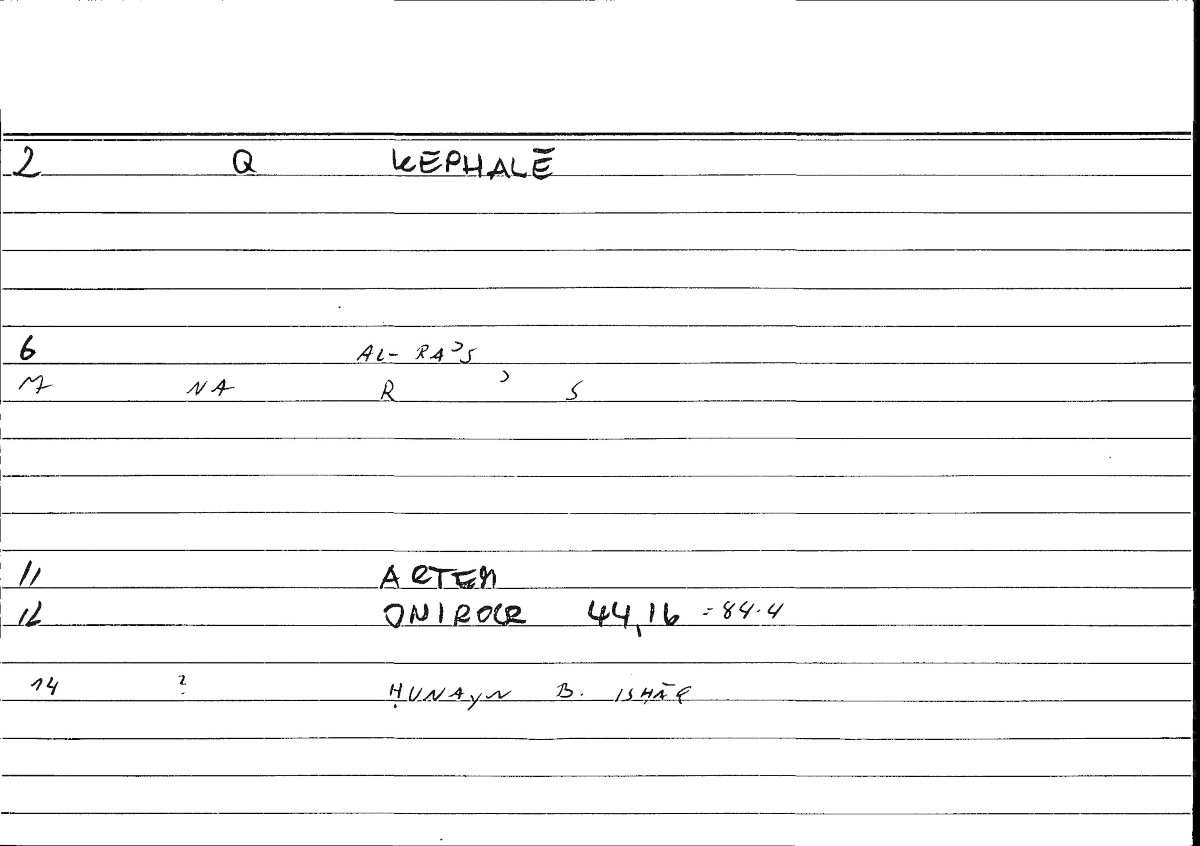 2 Q KĒPHALĒ
6 AL-RAʾS
7 NA R ʾ S
11 ARTEM
12 ONIROCR 44,16 = 84.4
14 ? ḤUNAYN B. ISḤĀQ